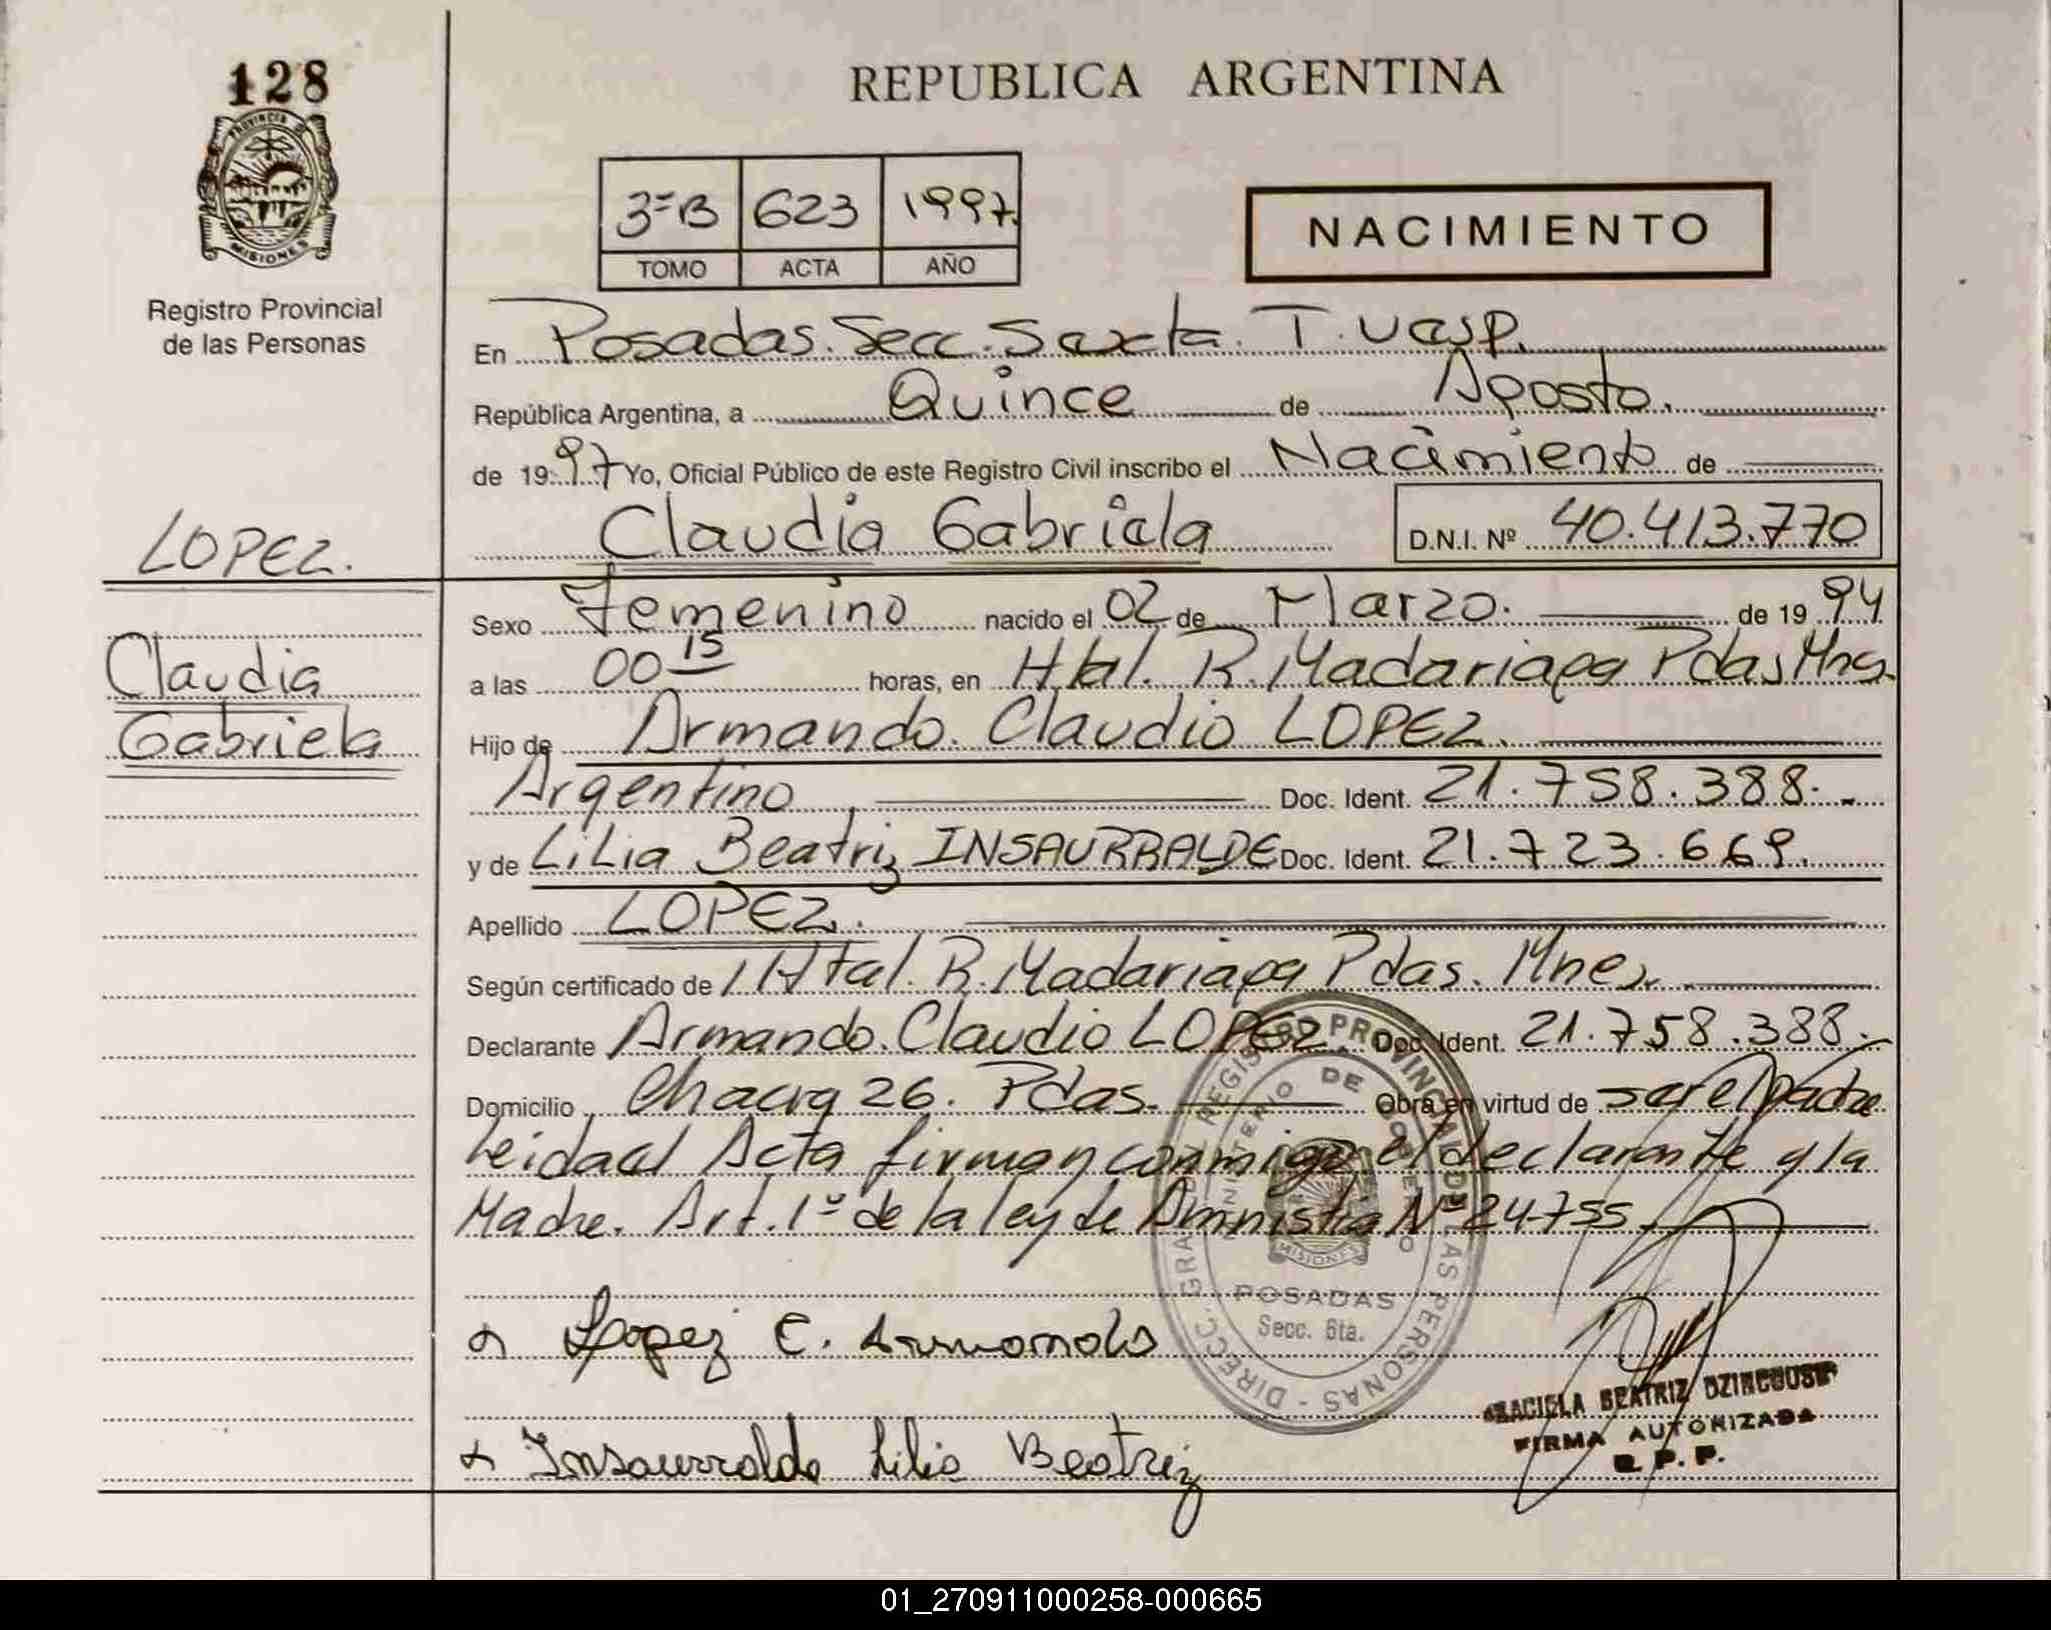 128
REPUBLICA ARGENTINA
PROVINCIA DE
MISIONES
3=B 623 1997.
TOMO ACTA AÑO
NACIMIENTO
Registro Provincial
de las Personas
En Posadas. Secc. Sexta. T.
República Argentina, a Quince de Agosto.
de 1997 Yo, Oficial Público de este Registro Civil inscribo el Nacimiento de
Claudia Gabriela D.N.I. Nº 40.413.770
LOPEZ.
Claudia
Gabriela
Sexo Femenino nacido el 02 de Marzo. de 1994
a las 00 15 horas, en Htal. R. Madariaga Pdas Mnes.
Hijo de Armando. Claudio LOPEZ.
Argentino, Doc. Ident. 21.758.388.-
y de Lilia Beatriz INSAURRALDE Doc. Ident. 21.723.669.
Apellido LOPEZ.
Según certificado de Htal. R. Madariaga Pdas. Mnes.
Declarante Armando. Claudio LOPEZ. Doc. Ident. 21.758.388.-
Domicilio Chacra 26. Pdas. Obra en virtud de ser el padre
Leida el Acta firman conmigo el declarante y la
Madre. Art. 1º de la ley de Amnistia Nº 24.755.
DIRECC. GRAL. DEL REGISTRO PROVINCIAL DE LAS PERSONAS
MINISTERIO DE GOBIERNO
MISIONES
POSADAS
Secc. 6ta.
Lopez C. Armando
Insaurralde Lilia Beatriz
GRACIELA BEATRIZ
FIRMA AUTORIZADA
R. P. P.
01_270911000258-000665